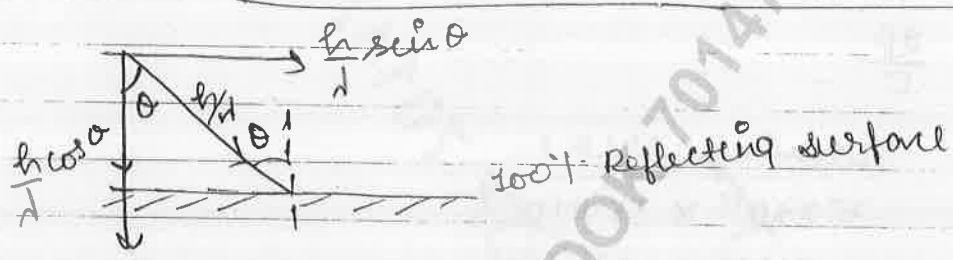 h/λ sinθ
θ
h/λ
θ
h/λ cosθ
100% Reflecting surface
OOK 7014